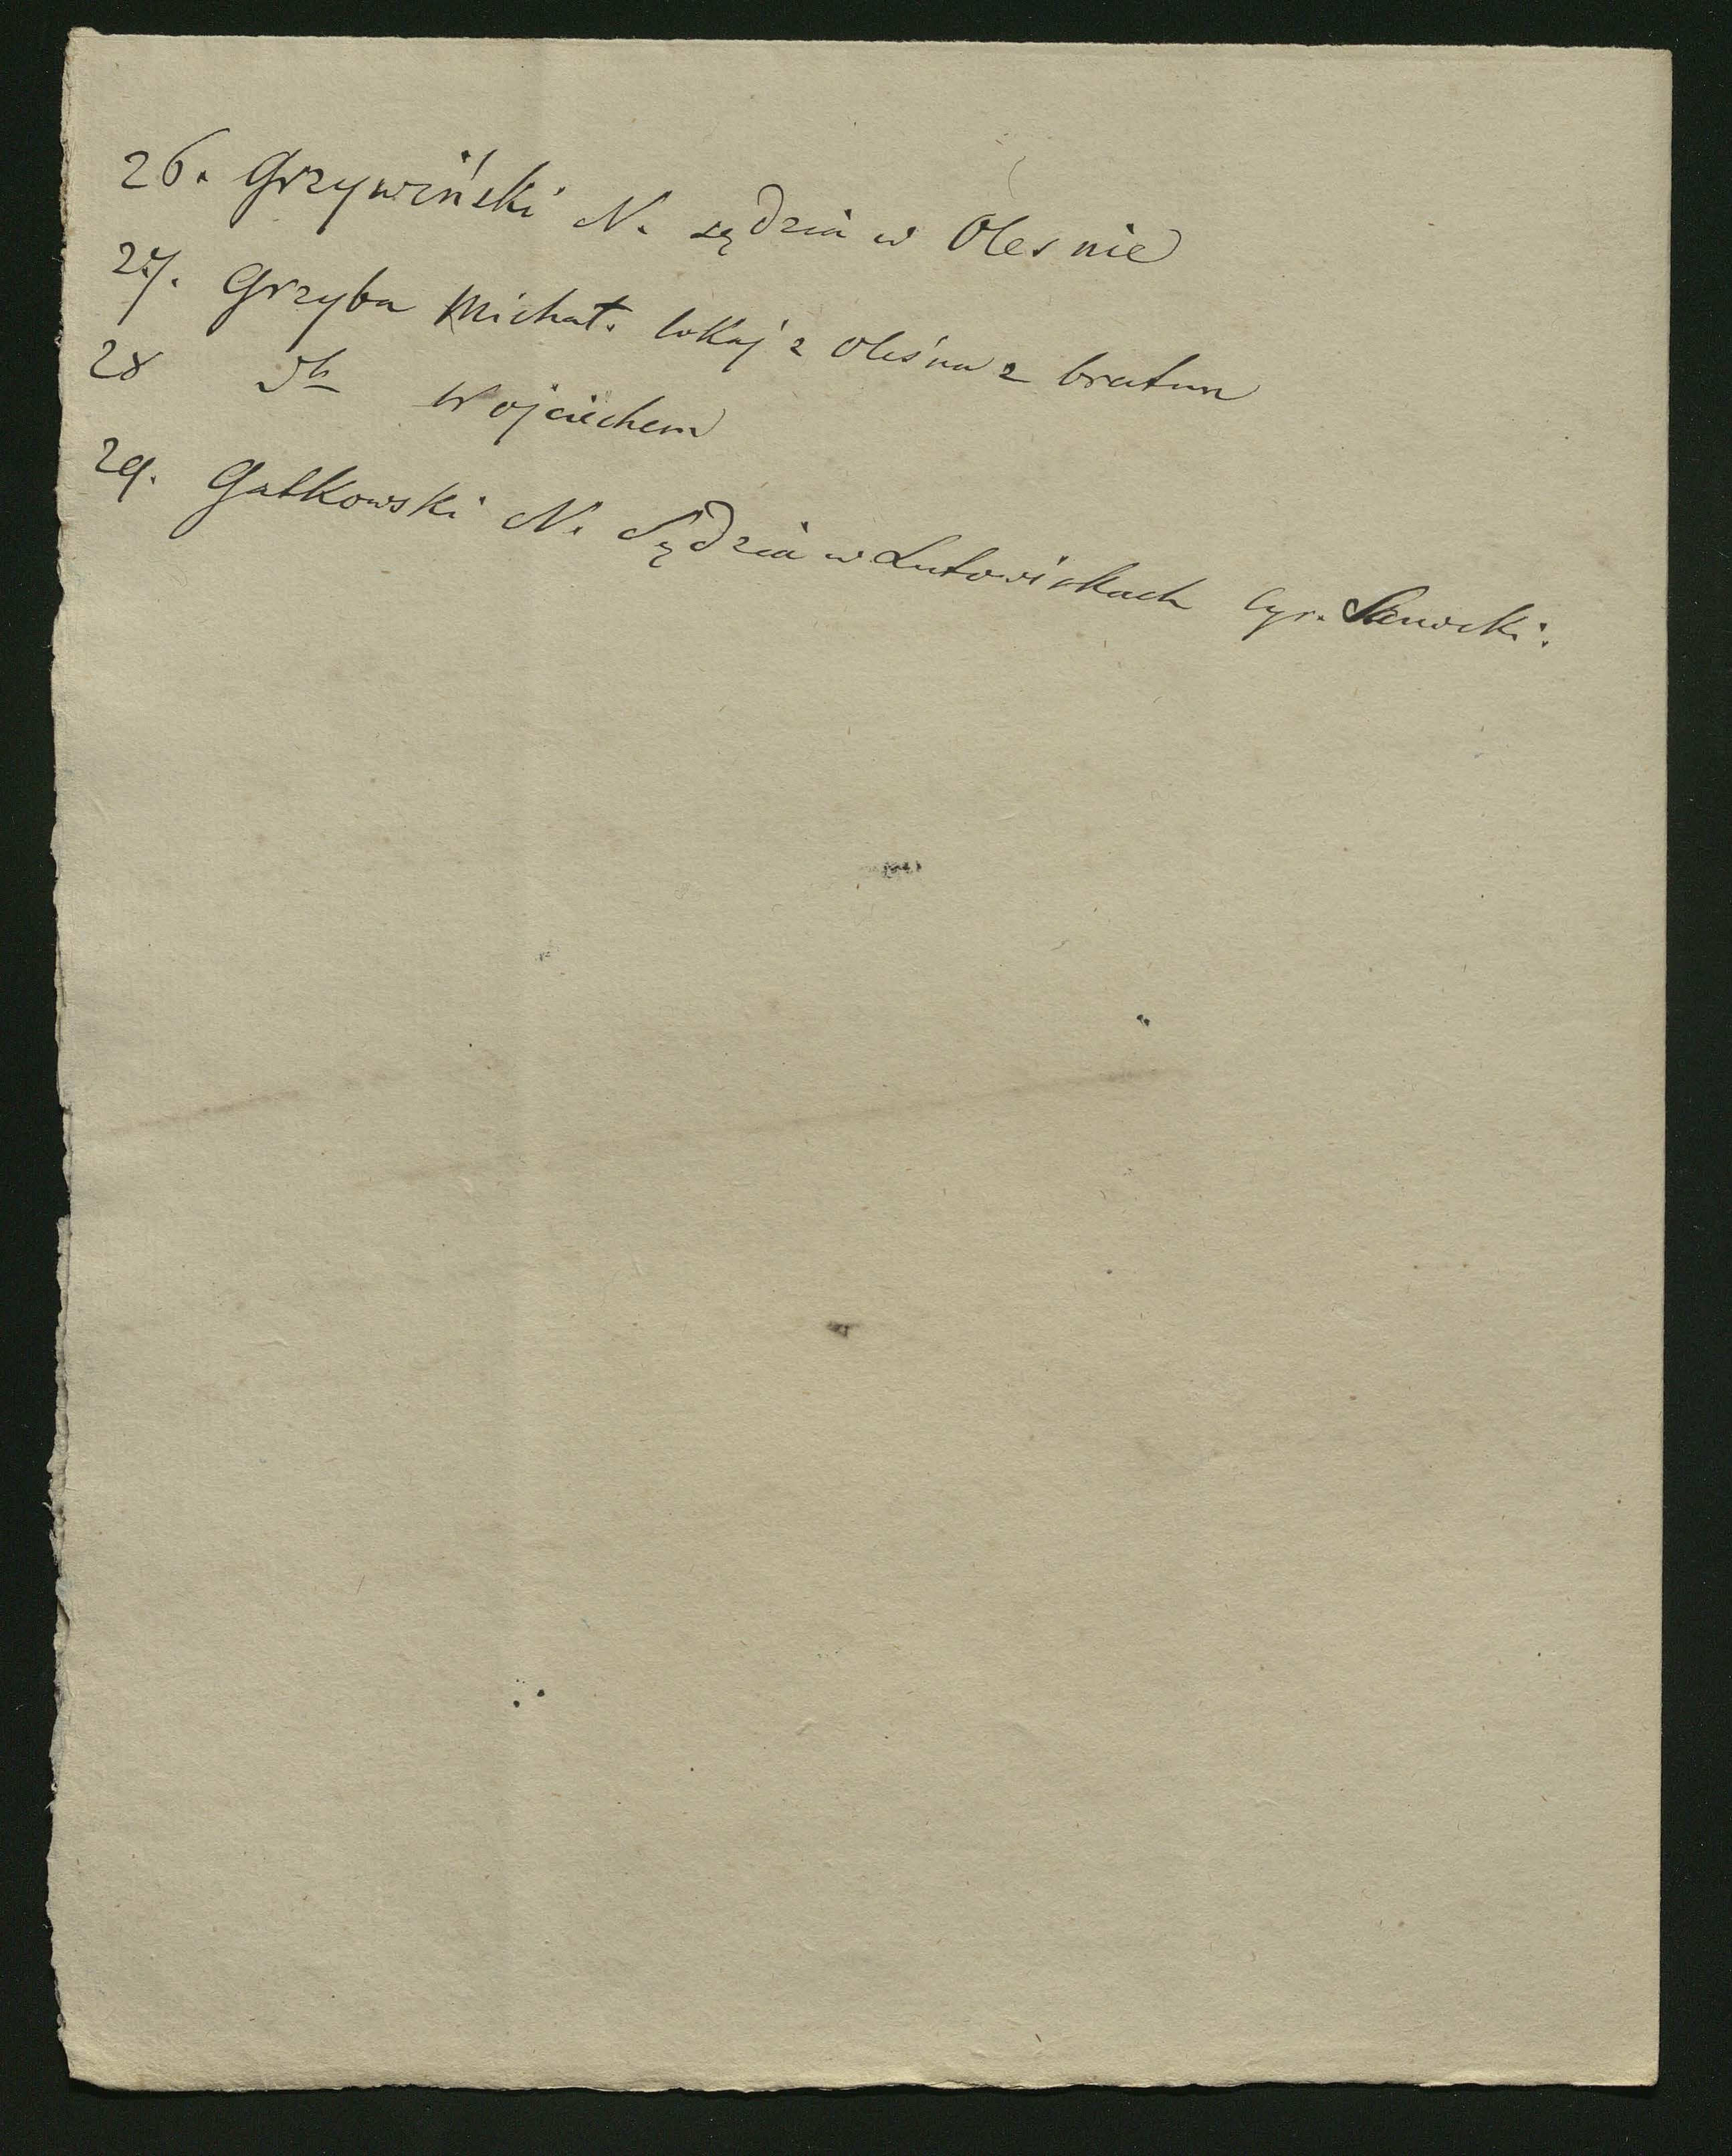 26. Grzywiński N. sędzia w Olesnie
27. Grzyba Michał. lokaj z Oleśna z bratem
28 Dto Wojciechem
29. Gałkowski N. Sędzia w Lutowiskach Cyr. Sanocki.